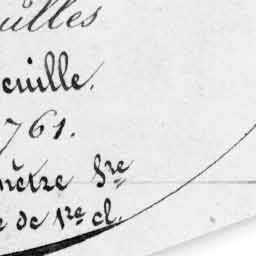 ulles
euille.
761.
mètre Sre
e de 1re cl.